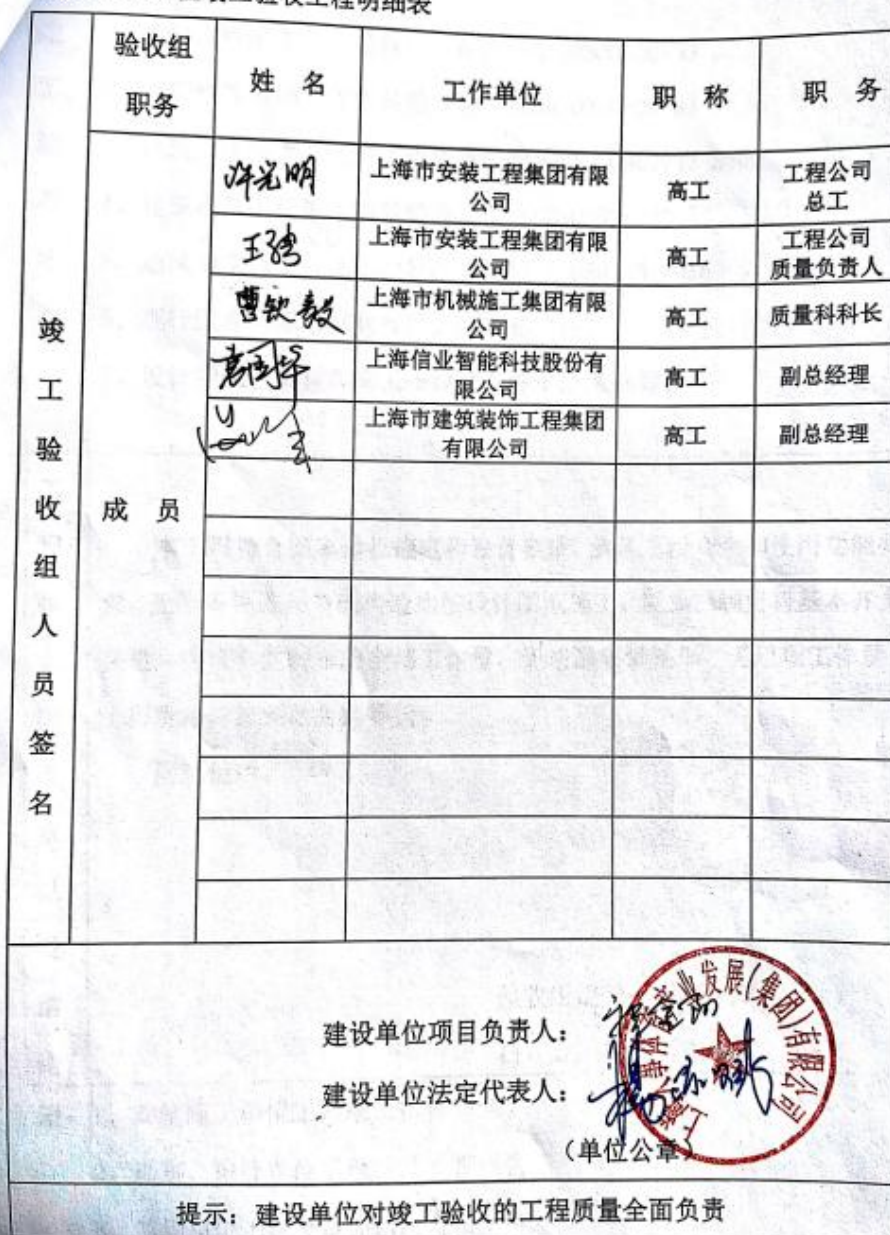 竣工验收工程明细表
验收组
职务
姓 名
工作单位
职 称
职 务
竣工验收组人员签名
成 员
许光明
上海市安装工程集团有限
公司
高工
工程公司
总工
上海市安装工程集团有限
公司
高工
工程公司
质量负责人
曹钦毅
上海市机械施工集团有限
公司
高工
质量科科长
袁国华
上海信业智能科技股份有
限公司
高工
副总经理
上海市建筑装饰工程集团
有限公司
高工
副总经理
建设单位项目负责人：
建设单位法定代表人：
（单位公章）
产业发展(集团)有限公司
提示：建设单位对竣工验收的工程质量全面负责